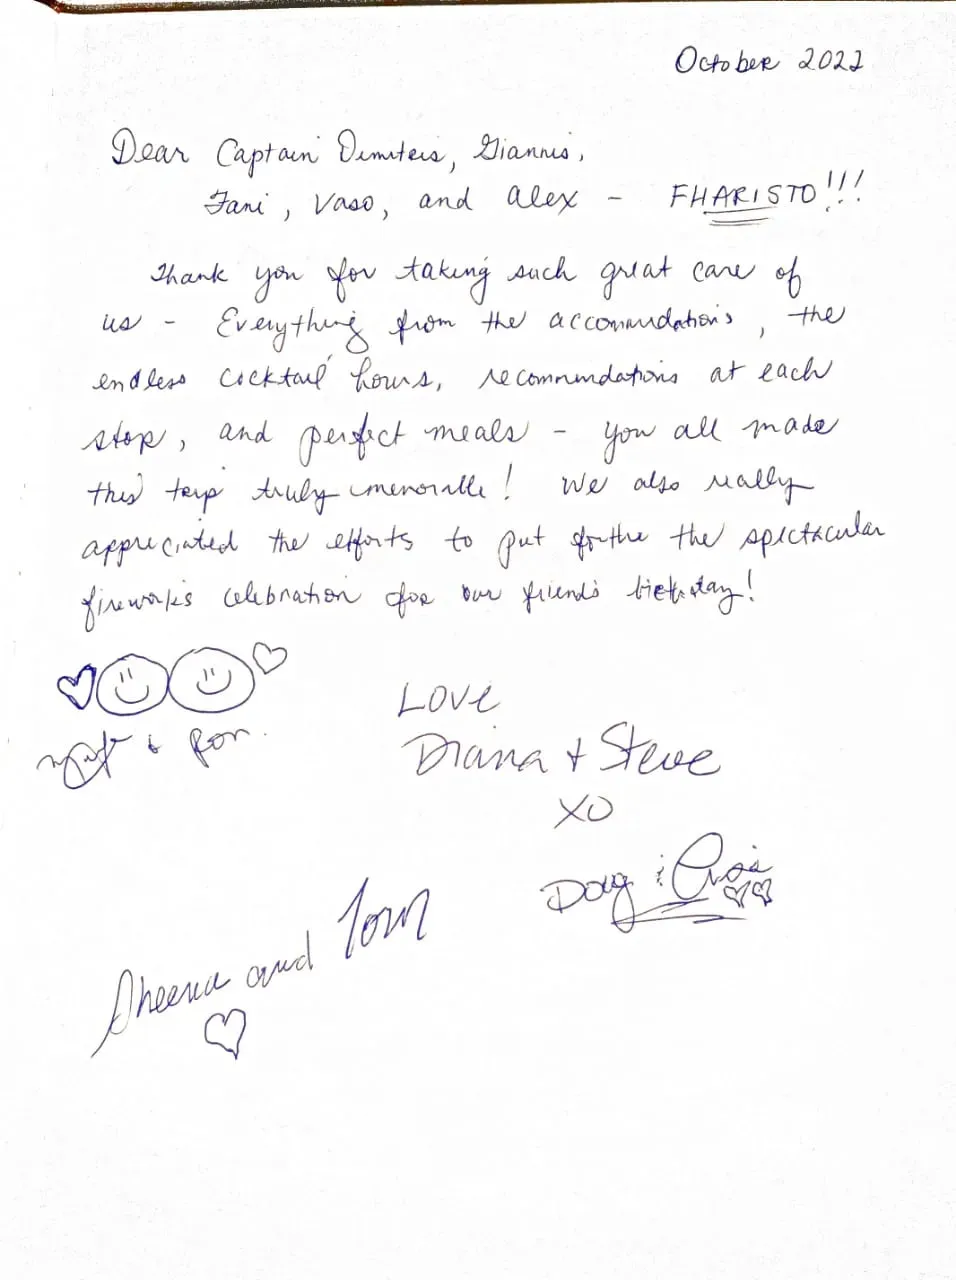 October 2022
Dear Captain Dimiteis, Giannis,
Fani, Vaso, and Alex - FHARISTO!!!
Thank you for taking such great care of
us - Everything from the accommodations, the
endless cocktail hours, recommendations at each
stop, and perfect meals - you all made
this trip truly memorable! We also really
appreciated the efforts to put forthe the spectacular
fireworks celebration for our friend's birthday!
Love
& Ron.
Diana + Steve
XO
Doug &
Sheena and Tom